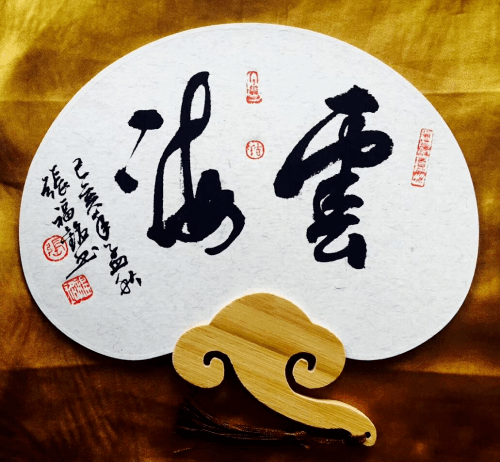 雲海
己亥年孟秋
張福銘書